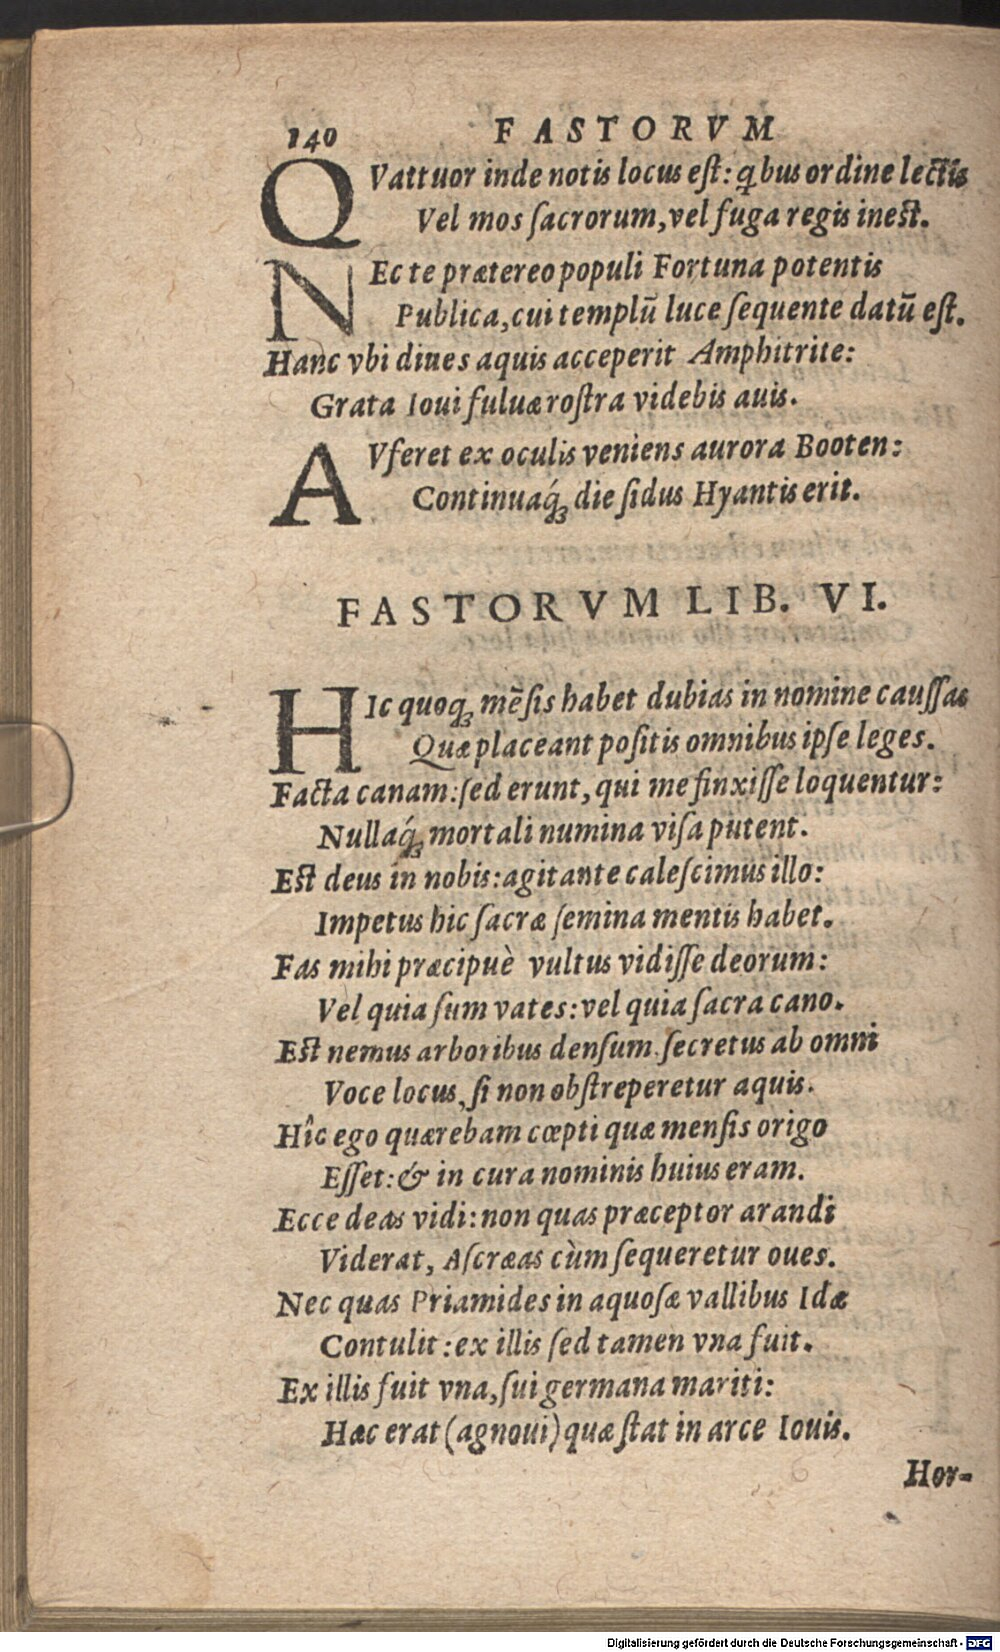 140 FASTORVM
QVattuor inde notis locus est: qbus ordine lectis
Vel mos sacrorum, vel fuga regis inest.
NEc te prætereo populi Fortuna potentis
Publica, cui templū luce sequente datū est.
Hanc vbi diues aquis acceperit Amphitrite:
Grata Ioui fuluæ rostra videbis auis.
AVferet ex oculis veniens aurora Booten:
Continuaq́ꝫ die sidus Hyantis erit.
FASTORVM LIB. VI.
HIc quoqꝫ mēsis habet dubias in nomine caussas
Quæ placeant positis omnibus ipse leges.
Facta canam: sed erunt, qui me finxisse loquentur:
Nullaq́ꝫ mortali numina visa putent.
Est deus in nobis: agitante calescimus illo:
Impetus hic sacræ semina mentis habet.
Fas mihi præcipuè vultus vidisse deorum:
Vel quia sum vates: vel quia sacra cano.
Est nemus arboribus densum. secretus ab omni
Voce locus, si non obstreperetur aquis.
Hîc ego quærebam cœpti quæ mensis origo
Esset: & in cura nominis huius eram.
Ecce deas vidi: non quas præceptor arandi
Viderat, Ascræas cùm sequeretur oues.
Nec quas Priamides in aquosæ vallibus Idæ
Contulit: ex illis sed tamen vna fuit.
Ex illis fuit vna, sui germana mariti:
Hæc erat (agnoui) quæ stat in arce Iouis.
Hor-
Digitalisierung gefördert durch die Deutsche Forschungsgemeinschaft - DFG